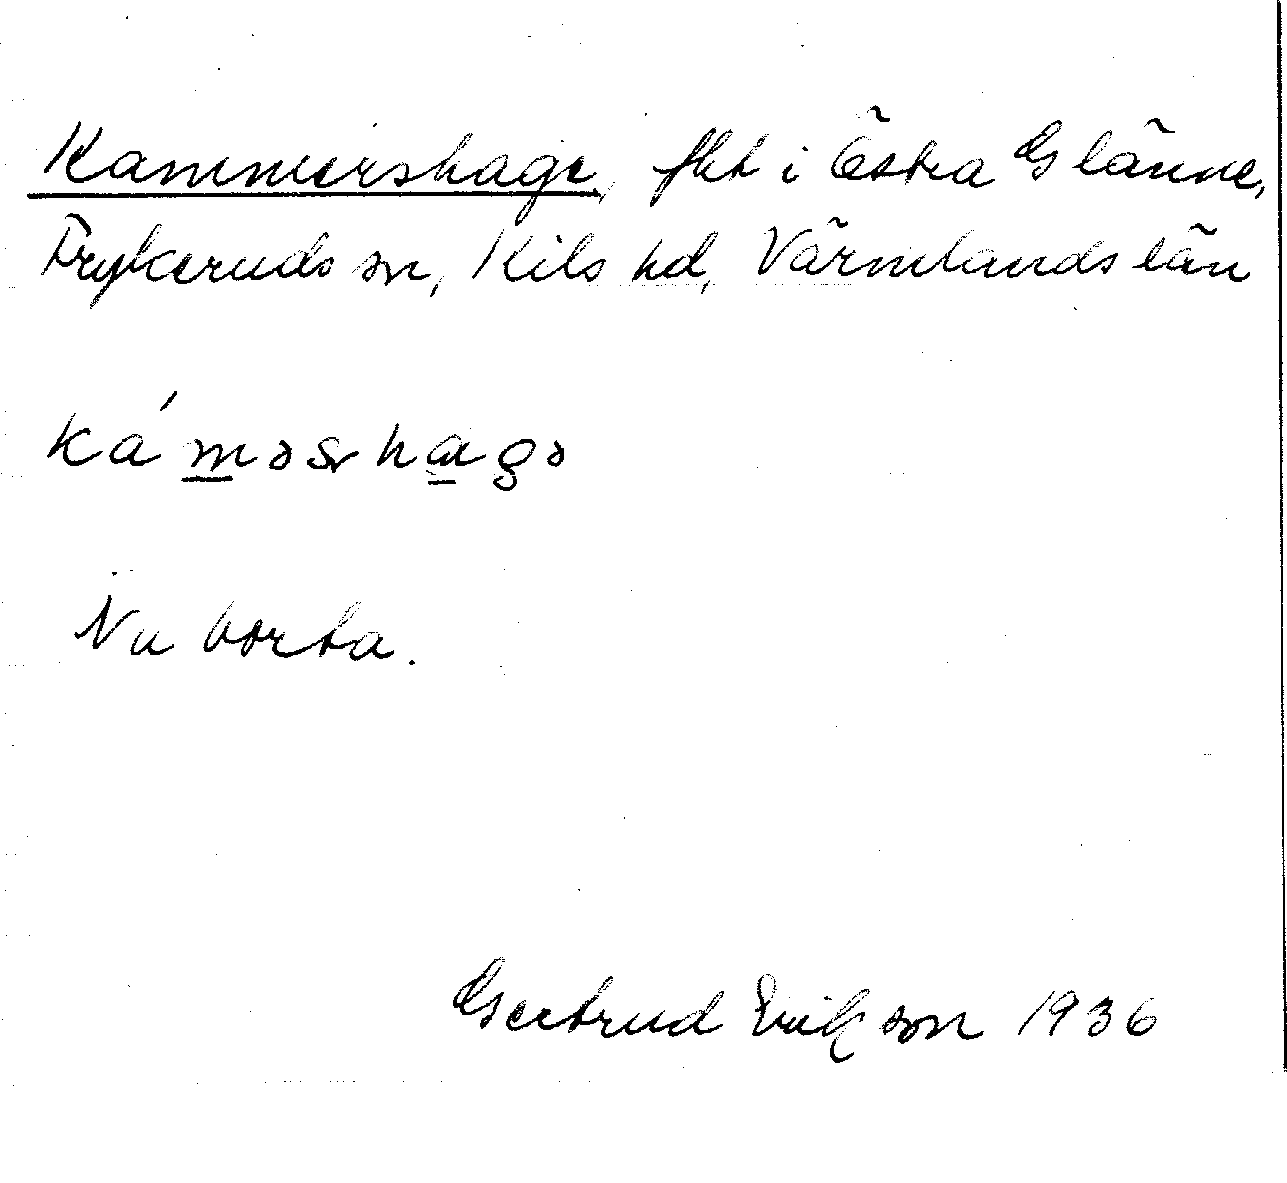 Kammershage, fht i Östra Glänne,
Frykeruds sn, Kils hd, Värmlands län
Nu borta.
Gertrud Erikson 1936